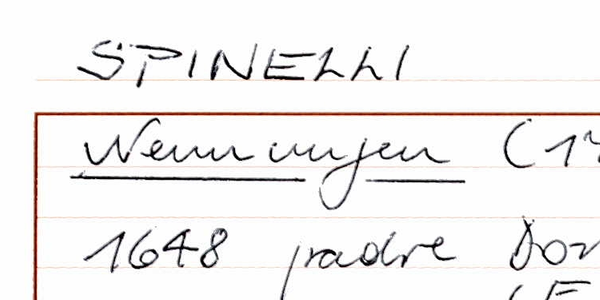 SPINELLI
Nennungen (17
1648 padre Don